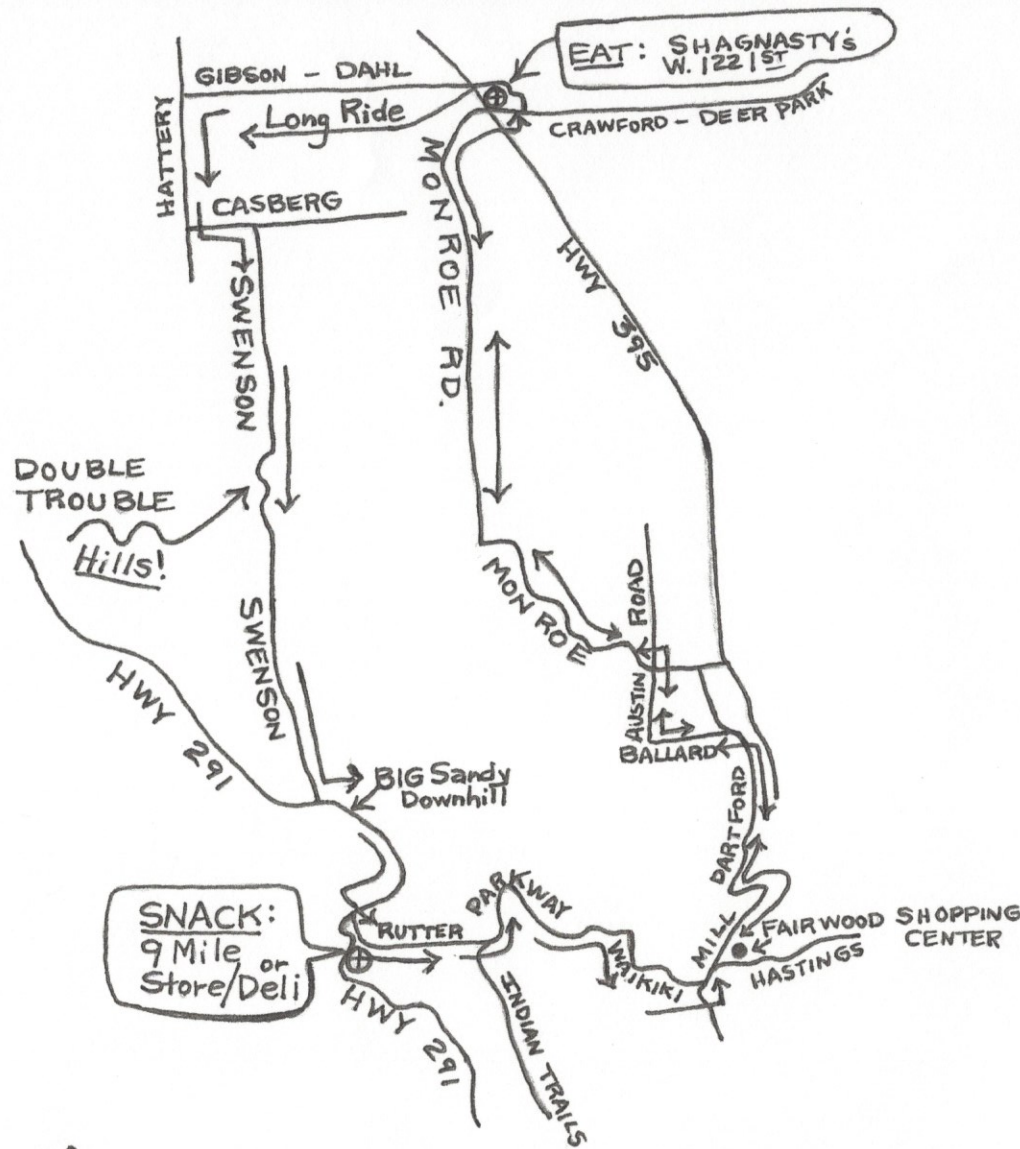 EAT: SHAGNASTY's
W. 122 1ST
GIBSON - DAHL
Long Ride
CRAWFORD - DEER PARK
HATTERY
CASBERG
MONROE RD.
HWY 395
SWENSON
DOUBLE
TROUBLE
Hills!
MONROE
ROAD
AUSTIN
SWENSON
HWY 291
BALLARD
BIG Sandy
Downhill
DARTFORD
SNACK:
9 Mile or
Store/Deli
RUTTER
PARKWAY
WAIKIKI
MILL
FAIRWOOD SHOPPING
CENTER
HASTINGS
HWY 291
INDIAN TRAILS